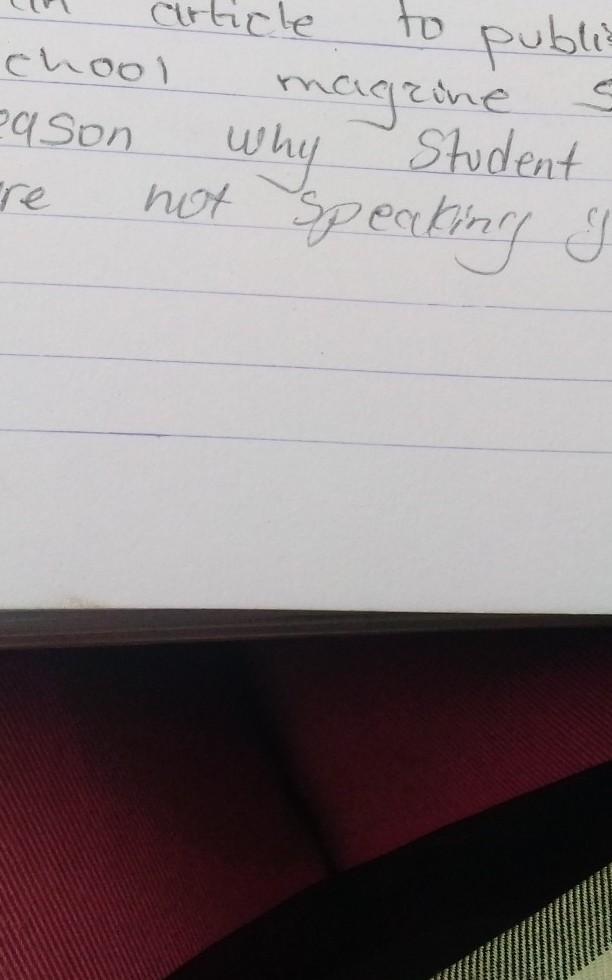 article to publi
chool magzine s
eason why Student
re not speaking